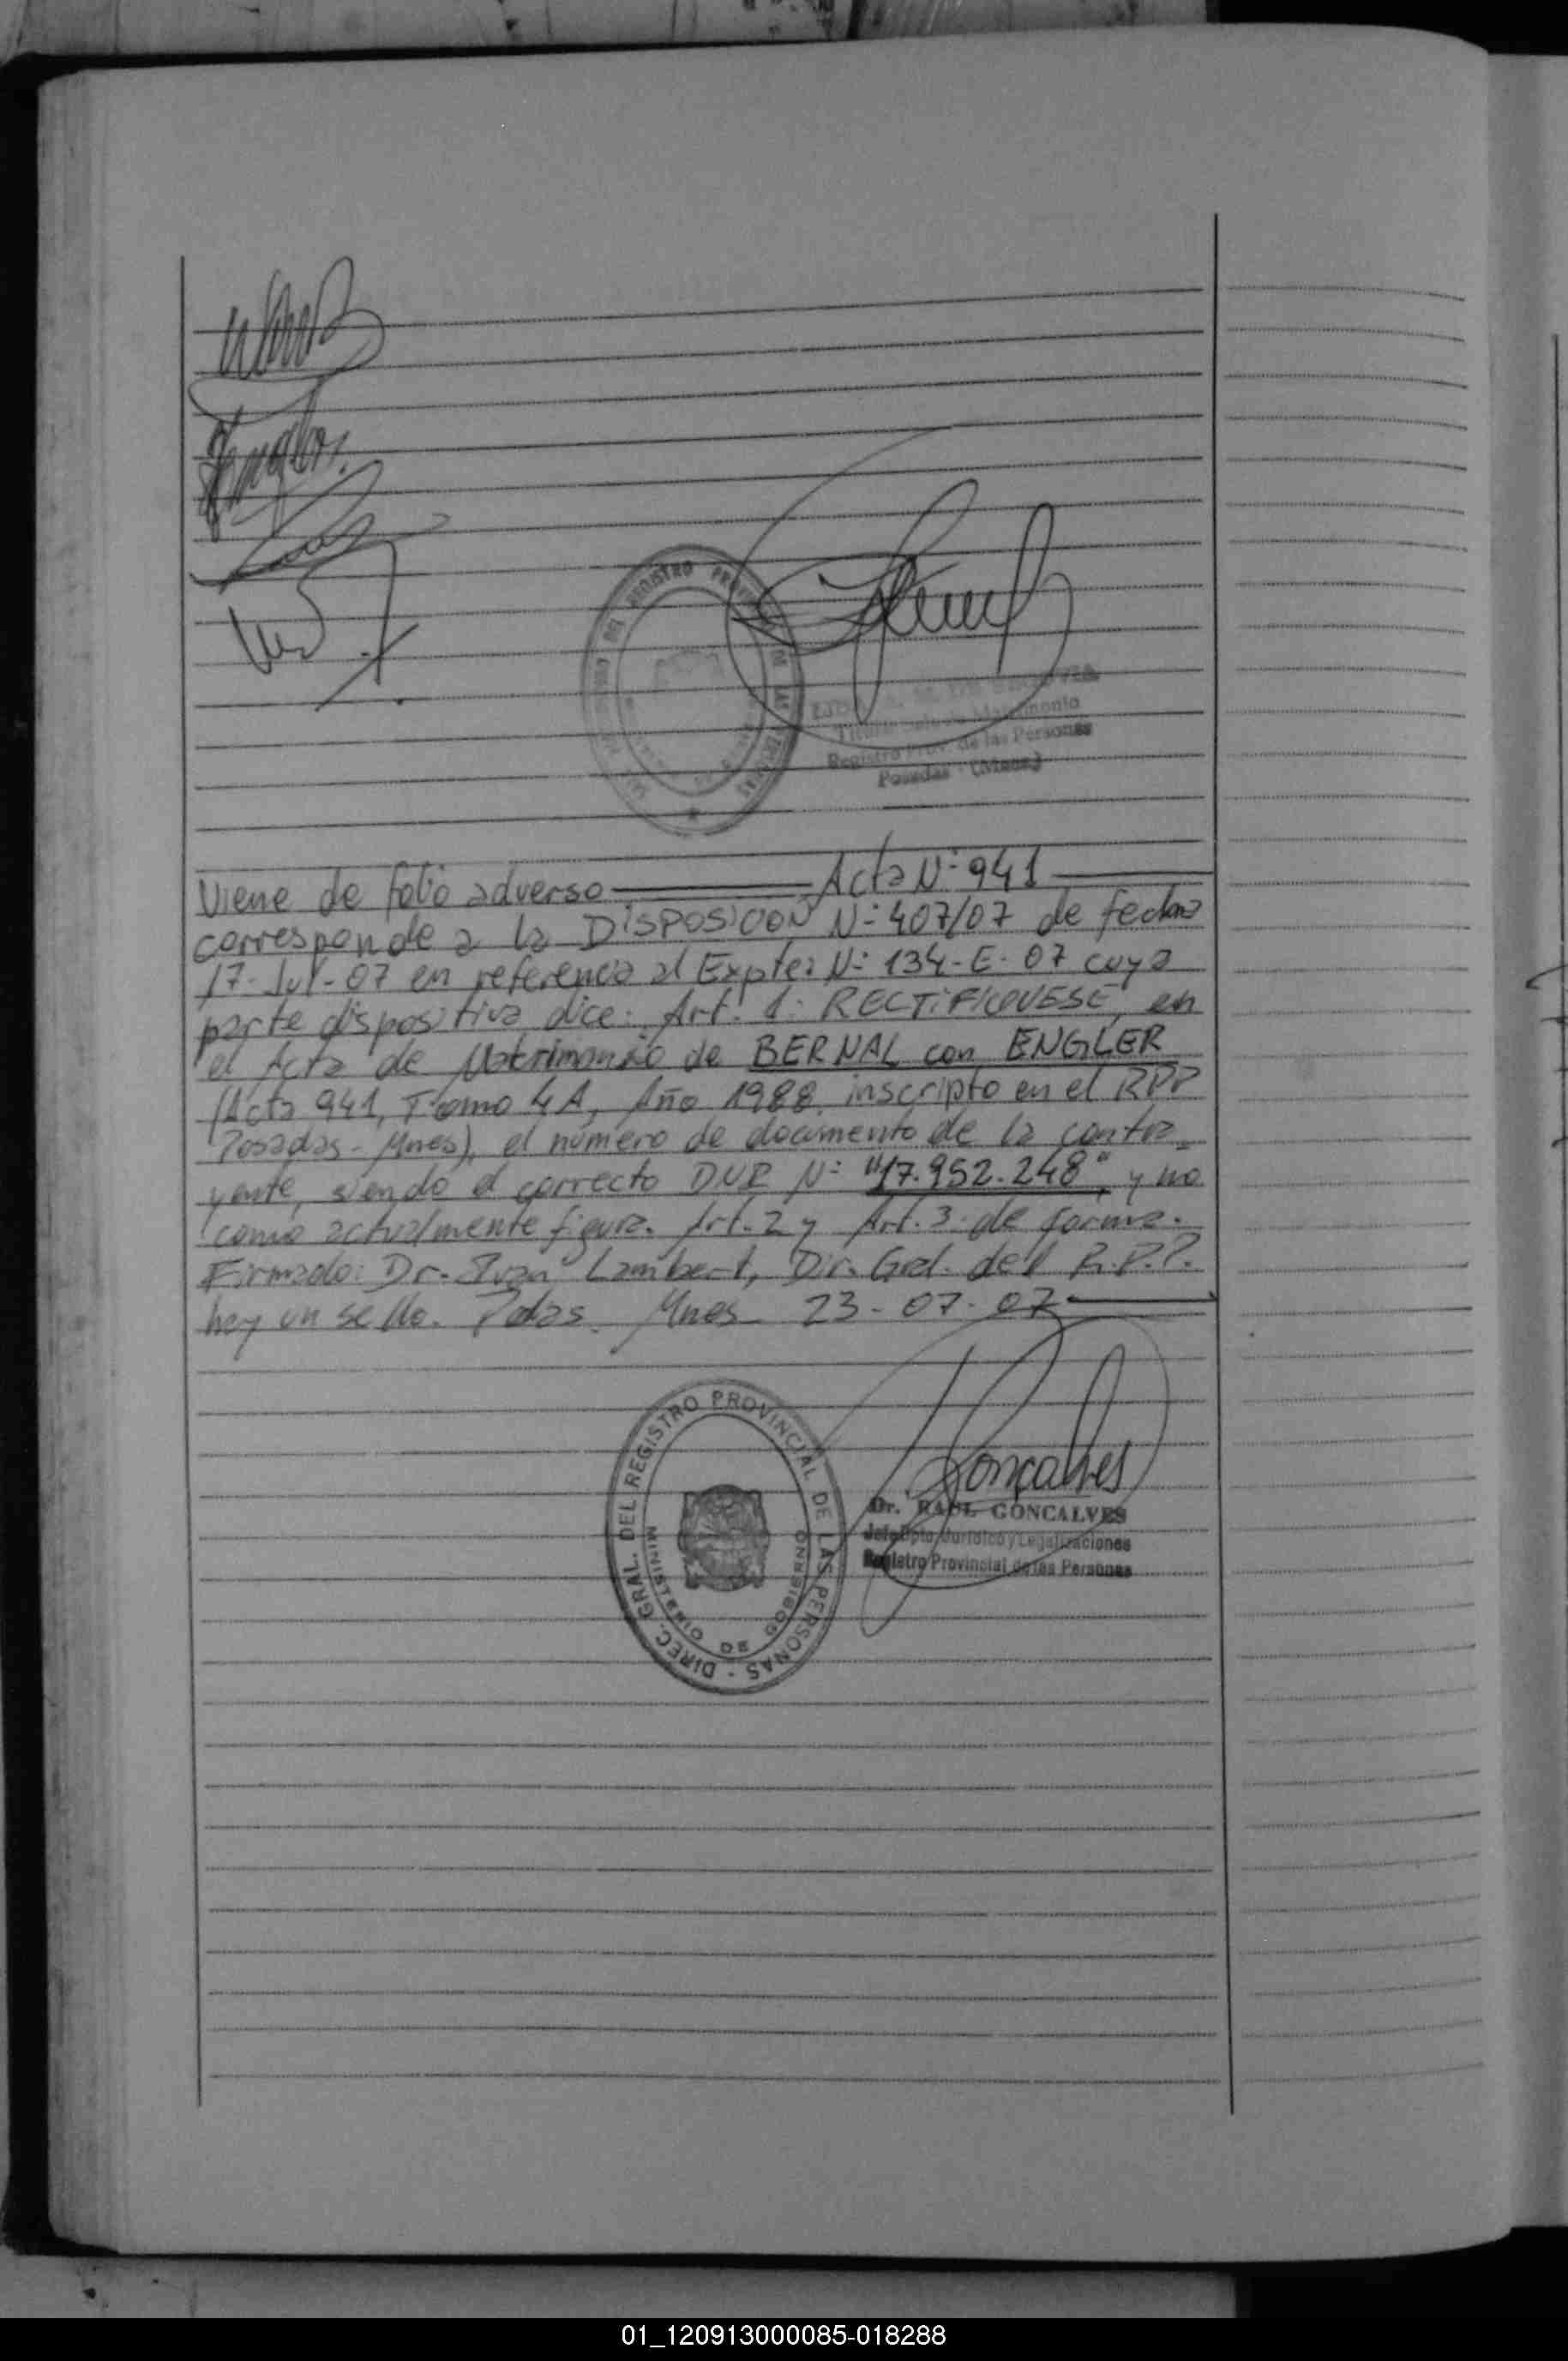 REGISTRO PROVINCIAL DE LAS PERSONAS
Registro Prov. de las Personas
Posadas - (Mnes)
Viene de folio adverso Acta N: 941
corresponde a la DISPOSICION N: 407/07 de fecha
17-Jul-07 en referencia al Expte: N: 134-E-07 cuya
parte dispositiva dice: Art. 1: RECTIFIQUESE, en
el Acta de Matrimonio de BERNAL con ENGLER
(Acta 941, Tomo 4A, Año 1988, inscripto en el RPP
Posadas-Mnes), el número de documento de la contra-
yente, siendo el correcto D.N.I. N: "17.952.248", y no
como actualmente figura. Art. 2 y Art. 3 de forma.
Firmado: Dr. Ivan Lambert, Dir. Gral. del R.P.P.
hay un sello. Pdas. Mnes. 23-07-07
DIREC. GRAL. DEL REGISTRO PROVINCIAL DE LAS PERSONAS -
MINISTERIO DE GOBIERNO
Goncalves
Dr. RAUL GONCALVES
Jefe Dpto. Jurídico y Legalizaciones
Registro Provincial de las Personas
01_120913000085-018288